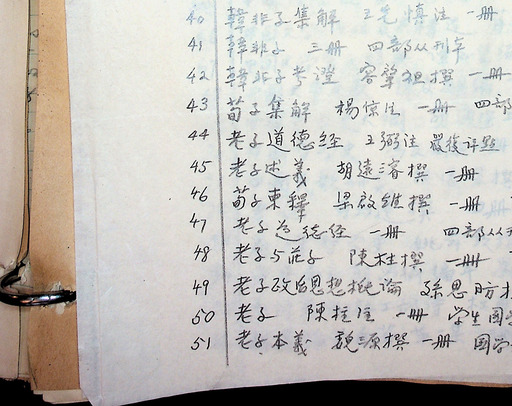 40 韓非子集解 王先慎注 一册
41 韓非子 三册 四部从刊本
42 韓非子考證 容肇祖撰 一册
43 荀子集解 楊倞注 一册 四部
44 老子道德经 王弼注 嚴復评點
45 老子述義 胡遠濬撰 一册
46 荀子柬釋 梁啟雄撰 一册
47 老子道德经 一册 四部从刊
48 老子与莊子 陳柱撰 一册
49 老子政治思想概論 孫思昉
50 老子 陳柱注 一册 学生国学
51 老子本義 魏源撰 一册 国学